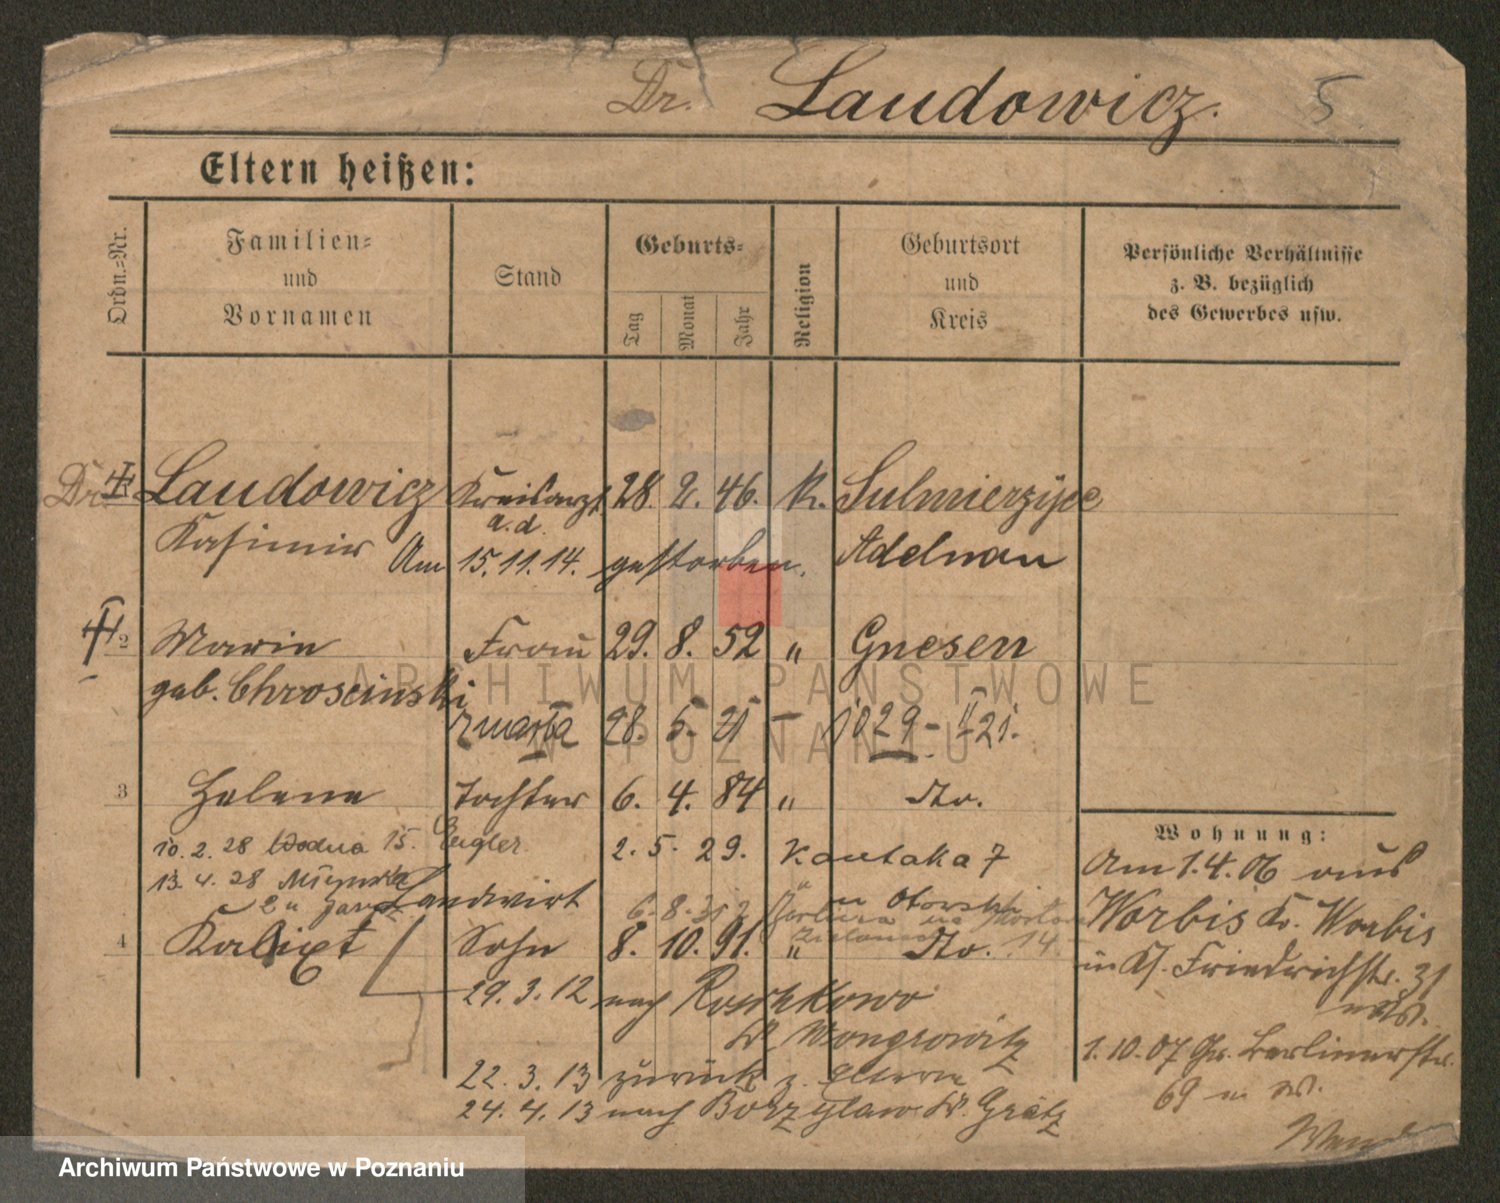 Dr. Laudowicz. 5
Eltern heißen:
Ordn.=Nr.
Familien= und Vornamen
Stand
Geburts=
Tag
Monat
Jahr
Religion
Geburtsort und Kreis
Persönliche Verhältnisse z. B. bezüglich des Gewerbes usw.
Dr. Laudowicz Kreisarzt 28. 2. 46. K. Sulmierzyce
a. d.
Kasimir Am 15.11.14. gestorben. Adelnau
2 Marie Frau 29. 8. 52 " Gnesen
geb. Chroscinski
zmarła 28. 5. 21 - 1029 - 21.
3 Helene Tochter 6. 4. 84 " Do.
10. 2. 28 Wodna 15. 2. 5. 29. Kantaka 7
13. 4. 28
Landwirt 6. 8.
4 Kalixt Sohn 8. 10. 91. " Do. 14.
29. 3. 12 nach Kr. Wongrowitz
22. 3. 13 zurück z. Eltern
24. 4. 13 nach Kr. Grätz
Wohnung:
Am 1.4.06 aus
Worbis Kr. Worbis
in Friedrichstr. 31
1. 10. 07 Gr. Berlinerstr.
69
ARCHIWUM PAŃSTWOWE
W POZNANIU
Archiwum Państwowe w Poznaniu